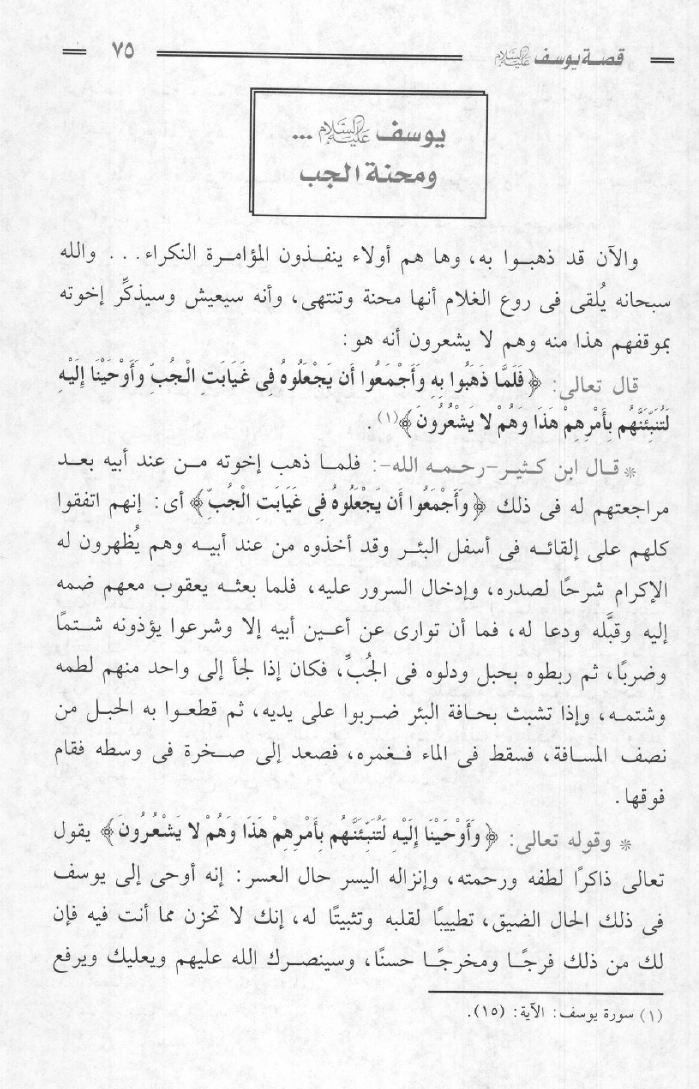 قصة يوسف عليه السلام
٧٥
يوسف عليه السلام ...
ومحنة الجب
والآن قد ذهبوا به، وها هم أولاء ينفذون المؤامرة النكراء... والله
سبحانه يُلقى فى روع الغلام أنها محنة وتنتهى، وأنه سيعيش وسيذكِّر إخوته
بموقفهم هذا منه وهم لا يشعرون أنه هو:
قال تعالى: ﴿فَلَمَّا ذَهَبُوا بِهِ وَأَجْمَعُوا أَن يَجْعَلُوهُ فِى غَيَابَتِ الْجُبِّ وَأَوْحَيْنَا إِلَيْهِ
لَتُنَبِّئَنَّهُم بِأَمْرِهِمْ هَذَا وَهُمْ لا يَشْعُرُونَ﴾(١).
* قال ابن كثير -رحمه الله-: فلما ذهب إخوته من عند أبيه بعد
مراجعتهم له فى ذلك ﴿وَأَجْمَعُوا أَن يَجْعَلُوهُ فِى غَيَابَتِ الْجُبِّ﴾ أى: إنهم اتفقوا
كلهم على إلقائه فى أسفل البئر وقد أخذوه من عند أبيه وهم يُظهرون له
الإكرام شرحًا لصدره، وإدخال السرور عليه، فلما بعثه يعقوب معهم ضمه
إليه وقبَّله ودعا له، فما أن توارى عن أعين أبيه إلا وشرعوا يؤذونه شتمًا
وضربًا، ثم ربطوه بحبل ودلوه فى الجُبِّ، فكان إذا لجأ إلى واحد منهم لطمه
وشتمه، وإذا تشبث بحافة البئر ضربوا على يديه، ثم قطعوا به الحبل من
نصف المسافة، فسقط فى الماء فغمره، فصعد إلى صخرة فى وسطه فقام
فوقها.
* وقوله تعالى: ﴿وَأَوْحَيْنَا إِلَيْهِ لَتُنَبِّئَنَّهُم بِأَمْرِهِمْ هَذَا وَهُمْ لا يَشْعُرُونَ﴾ يقول
تعالى ذاكرًا لطفه ورحمته، وإنزاله اليسر حال العسر: إنه أوحى إلى يوسف
فى ذلك الحال الضيق، تطييبًا لقلبه وتثبيتًا له، إنك لا تحزن مما أنت فيه فإن
لك من ذلك فرجًا ومخرجًا حسنًا، وسينصرك الله عليهم ويعليك ويرفع
(١) سورة يوسف: الآية: (١٥).